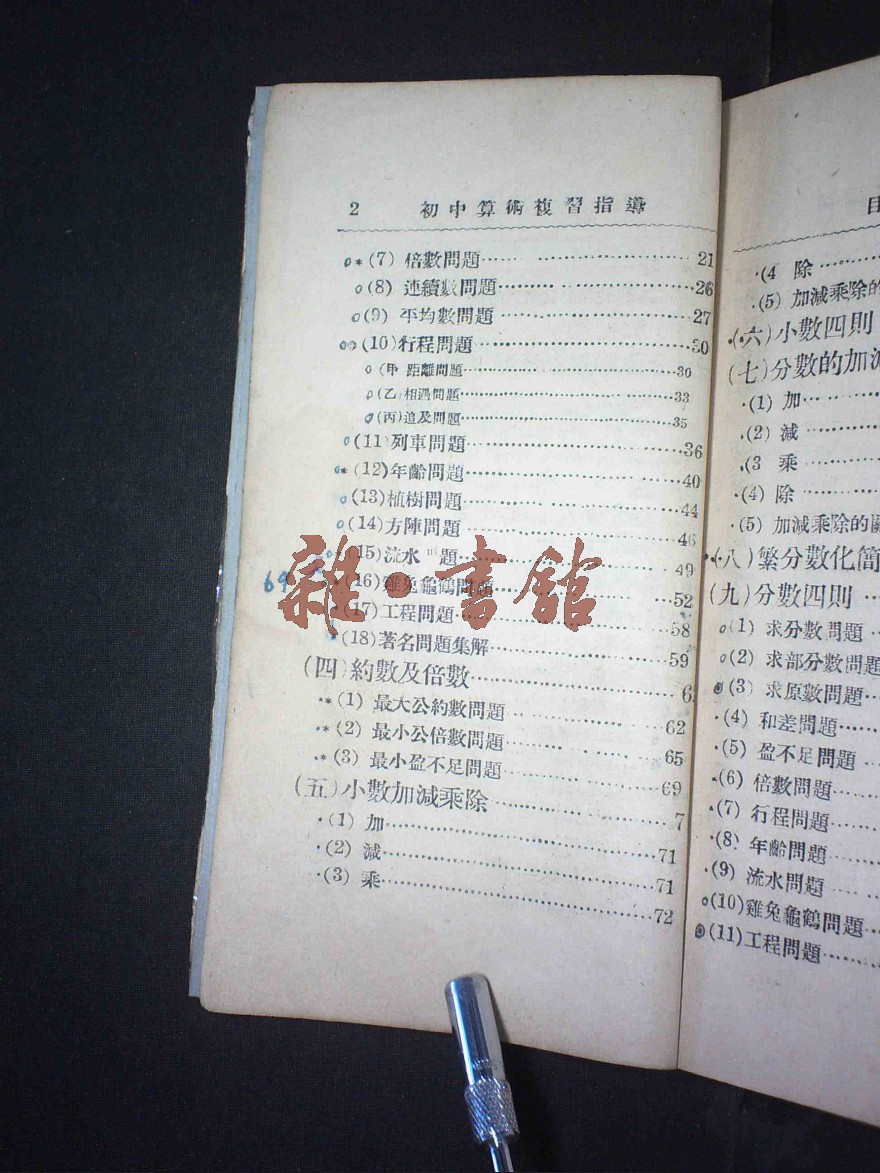 2 初中算術複習指導
(7) 倍數問題 21
(8) 連續數問題 26
(9) 平均數問題 27
(10)行程問題 30
(甲 距離問題 30
(乙)相遇問題 33
(丙)追及問題 35
(11)列車問題 36
(12)年齡問題 40
(13)植樹問題 44
(14)方陣問題 46
(15)流水 題 49
(16)雞兔龜鶴問題 52
(17)工程問題 58
(18)著名問題集解 59
(四)約數及倍數 6
(1) 最大公約數問題 62
(2) 最小公倍數問題 65
(3) 最小盈不足問題 69
(五)小數加減乘除 7
(1) 加 71
(2) 減 71
(3) 乘 72
69
雜·書館
目
(4 除
(5) 加減乘除的
(六)小數四則
(七)分數的加減
(1) 加
(2) 減
(3 乘
(4) 除
(5) 加減乘除的關
(八)繁分數化簡
(九)分數四則
(1) 求分數問題
(2) 求部分數問題
(3) 求原數問題
(4) 和差問題
(5) 盈不足問題
(6) 倍數問題
(7) 行程問題
(8) 年齡問題
(9) 流水問題
(10)雞兔龜鶴問題
(11)工程問題